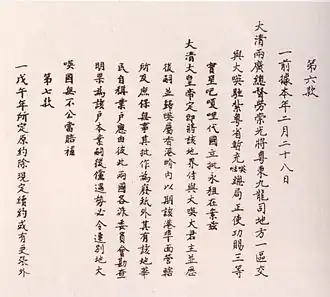 第六款
一前據本年二月二十八日
大清兩廣總督勞崇光將粵東九龍司地方一區交
與大𠸄駐紮粵省暫充𠸄𠵽總局正使功賜三等
寶星吧嗄哩代國立批永租在案茲
大清大皇帝定即將該地界付與大𠸄大君主並歷
後嗣並歸𠸄屬香港界內以期該港埠面管轄
所及庶保無事其批作為廢紙外其有該地華
民自稱業戶應由彼此兩國各派委員會勘查
明果為該戶本業嗣後倘遇勢必令遷別地大
𠸄國無不公當賠補
第七款
一戊午年所定原約除現定續約或有更張外